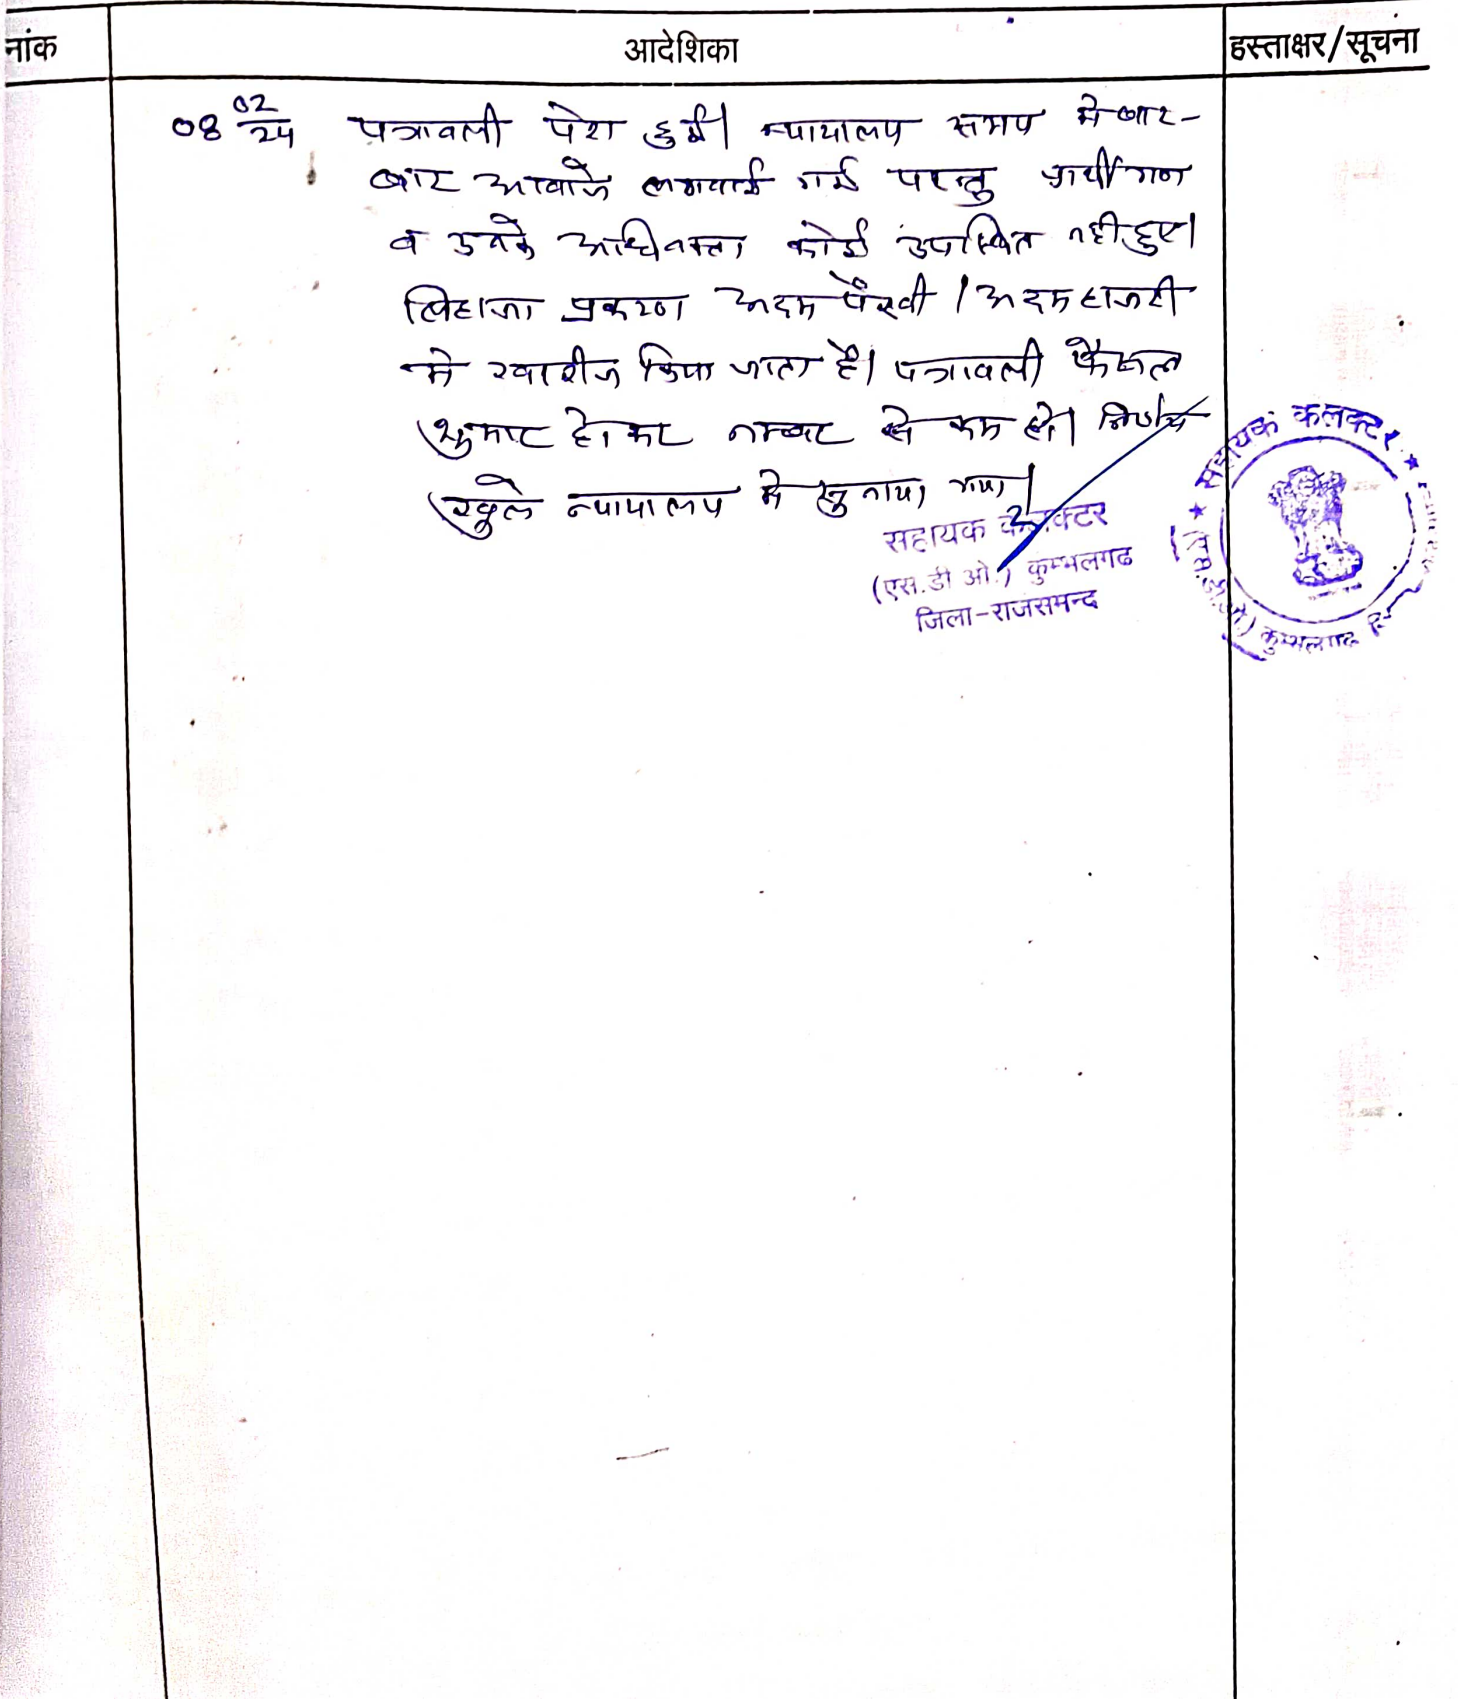 नांक आदेशिका हस्ताक्षर/सूचना
08 02/24 पत्रावली पेश हुई। न्यायालय समय मे बार-
बार आवाजे लगवाई गई परन्तु प्रार्थीगण
व उनके अधिवक्ता कोई उपस्थित नही हुए।
लिहाजा प्रकरण अदम पैरवी / अदम हाजरी
मे खारीज किया जाता है। पत्रावली फैसल
शुमार होकर नम्बर से कम हो। निर्णय
खुले न्यायालय मे सुनाया गया।
सहायक कलक्टर
(एस.डी ओ.) कुम्भलगढ
जिला-राजसमन्द
सहायक कलक्टर
कुम्भलगढ